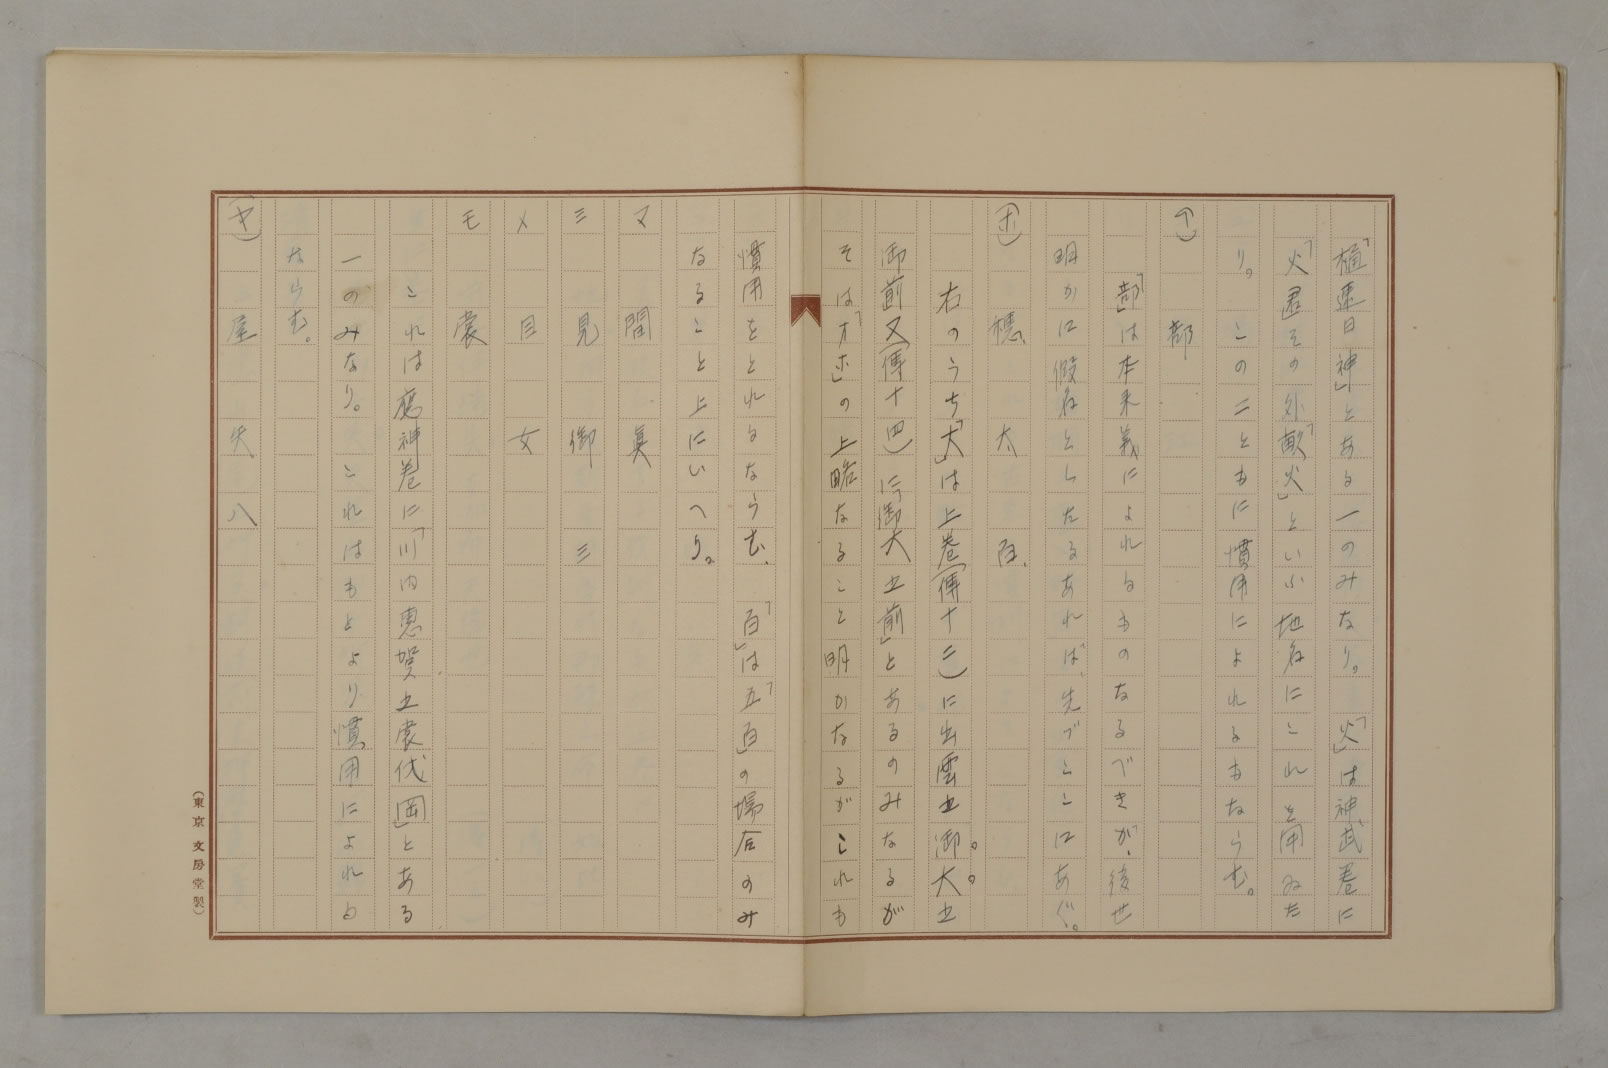 「樋速日神」とある一のみなり。「火」は神武卷に
「火君」その外「畝火」といふ地名にこれを用ゐた
り。この二ともに慣用によれるもならむ。
部
「部」は本来義によれるものなるべきが、後世
明かに假名としたるあれば、先づここにあぐ。
(ホ) 穗、大、百、
右のうち「大」は上卷(傳十二)に出雲之御大之
御前又(傳十四)に「御大之前」とあるのみなるが
そは「オホ」の上略なること明かなるがこれも
慣用をとれるならむ、「百」は「五百」の場合のみ
なること上にいへり。
マ 間 眞
ミ 見 御 三
メ 目 女
モ 裳
これは應神卷に「川内惠賀之裳伏岡」とある
一のみなり。これはもとより慣用によれる
ならむ。
(ヤ) 屋 矢 八
(東京 文房堂製)